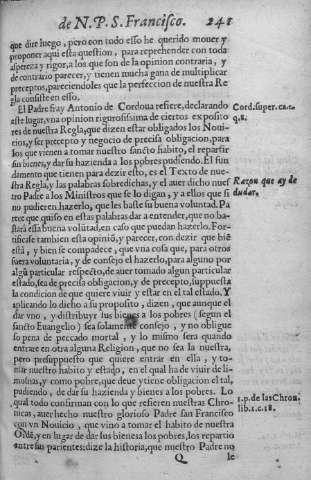 de N. P. S. Francisco. 241
que dire luego, pero con todo esso he querido mouer y
proponer aqui esta question, para reprehender con toda
aspereza y rigor, a los que son de la opinion contraria, y
de contrario parecer, y tienen mucha gana de multiplicar
preceptos, pareciendoles que la perfeccion de nuestra Re
gla consiste en esso.
El Padre fray Antonio de Cordoua refiere, declarando
este lugar, vna opinion rigurosissima de ciertos exposito
res de nuestra Regla, que dizen estar obligados los Noui-
cios, y ser precepto y negocio de precisa obligacion, para
los que vienen a tomar nuestro sancto habito, el repartir
sus bienes, y dar su hazienda a los pobres pudiendo. El fun
damento que tienen para dezir esto, es el Texto de nues-
tra Regla, y las palabras sobredichas, y el auer dicho nues
tro Padre a los Ministros que se lo digan, y a ellos que si
no pudieren hazerlo, que les baste su buena voluntad. Pa
rece que quiso en estas palabras dar a entender, que no ba-
stará essa buena volũtad, en caso que puedan hazerlo. For-
tificase tambien esta opiniõ, y parecer, con dezir que biẽ
està, y bien se compadece, que vna cosa que, para otros
fuera voluntaria, y de consejo el hazerlo, para alguno por
algũ particular respecto, de auer tomado algun particular
estado, sea de precisa obligacion, y de precepto, supuesta
la condicion de que quiere viuir y estar en el tal estado. Y
aplicando lo dicho a su proposito, dizen, que aunque el
dar vno, y distribuyr sus bienes a los pobres (segun el
sancto Euangelio) sea solamente consejo, y no obligue
so pena de peccado mortal, y lo mismo sera quando
entrare en otra alguna Religion, que no sea la nuestra,
pero presupuesto que quiere entrar en ella, y to-
mar nuestro habito y estado, en el qual ha de viuir de li-
mosnas, y como pobre, que deue y tiene obligacion el tal,
pudiendo, de dar su hazienda y bienes a los pobres. Lo
qual todo confirman con lo que refieren nuestras Chro-
nicas, auer hecho nuestro glorioso Padre san Francisco
con vn Nouicio, que vino a tomar el habito de nuestra
Ordẽ, y en lugar de dar sus bienes a los pobres, los repartio
entre sus parientes: dize la historia, que nuestro Padre no
Q le
Cord. super. ca. 2.
q. 8.
Razon que ay de
dudar.
1. p. de las Chron.
lib. 1. c. 18.